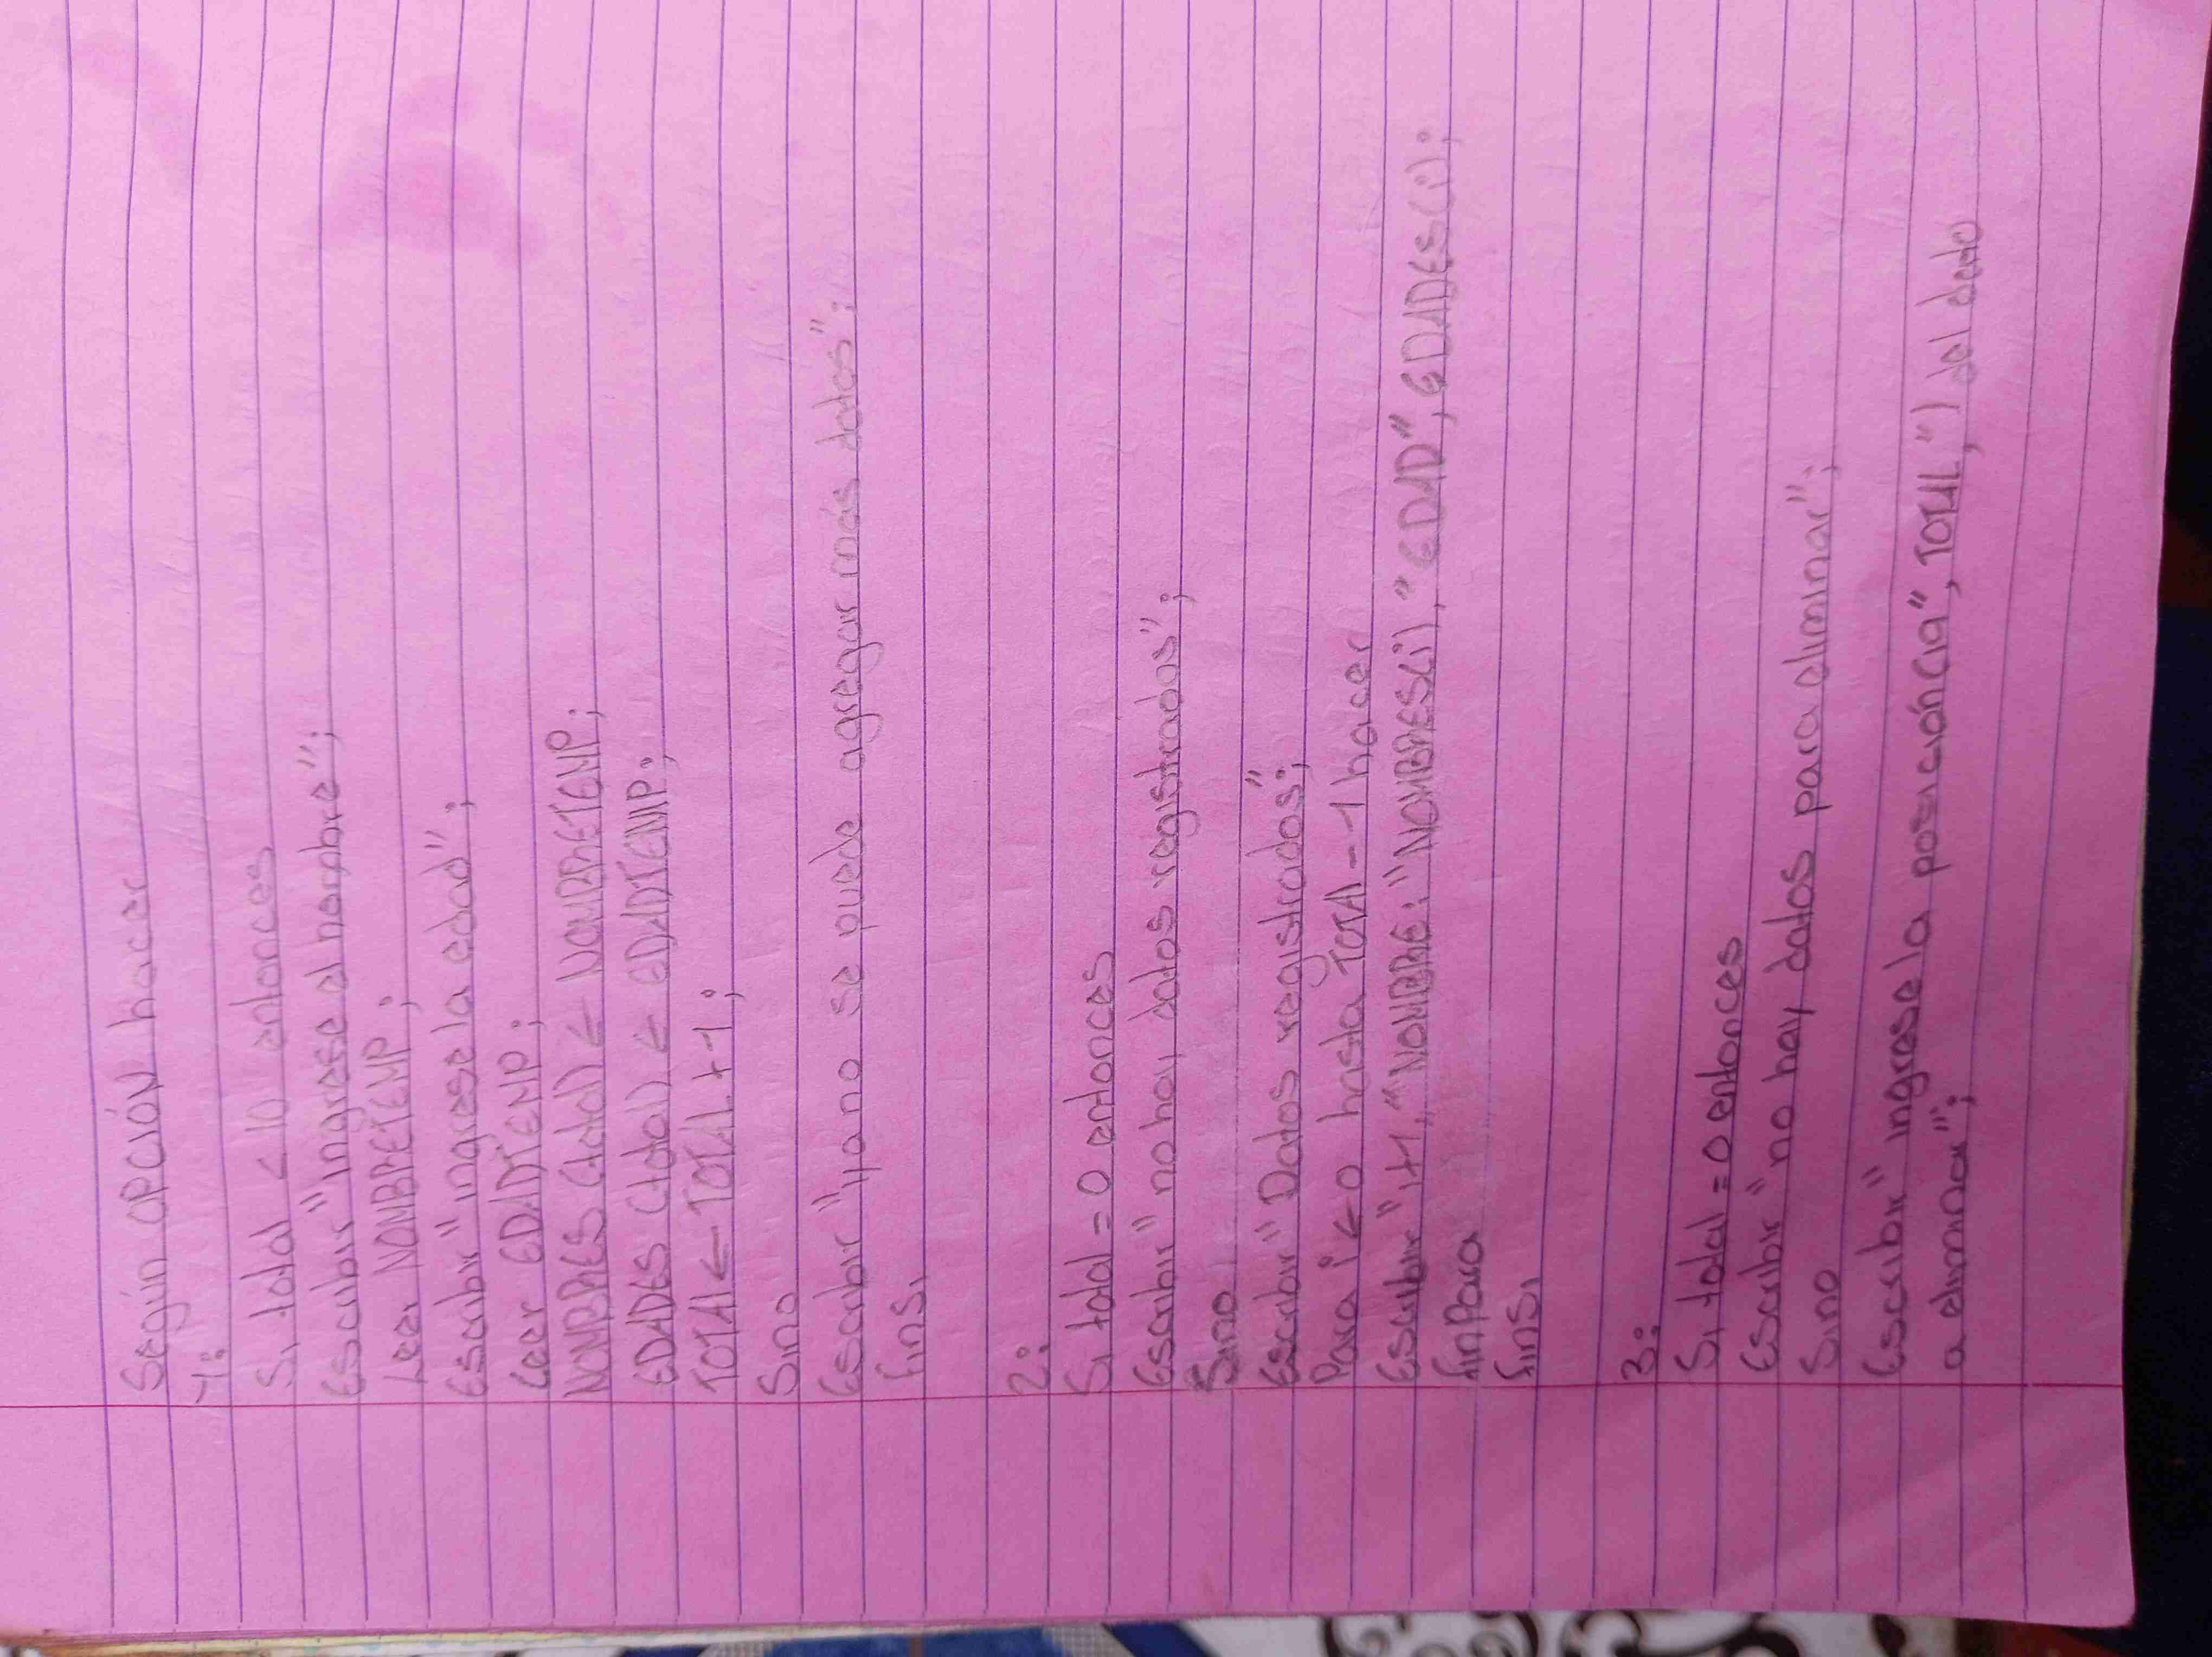 Según OPCIÓN hacer
1:
Si total < 10 entonces
Escribir "ingrese el nombre";
Leer NOMBRETEMP;
Escribir "ingrese la edad";
Leer EDADTEMP;
NOMBRES (total) ← NOMBRETEMP;
EDADES (total) ← EDADTEMP;
TOTAL ← TOTAL + 1;
Sino
Escribir "ya no se puede agregar más datos";
FinSi
2:
Si total = 0 entonces
Escribir "no hay datos registrados";
Sino
Escribir "Datos registrados";
Para i ← 0 hasta TOTAL - 1 hacer
Escribir "i+1, "NOMBRE: "NOMBRES(i), "EDAD", EDADES(i);
FinPara
FinSi
3:
Si total = 0 entonces
Escribir "no hay datos para eliminar";
Sino
Escribir "ingrese la posición(1a", TOTAL, ") del dato
a eliminar";